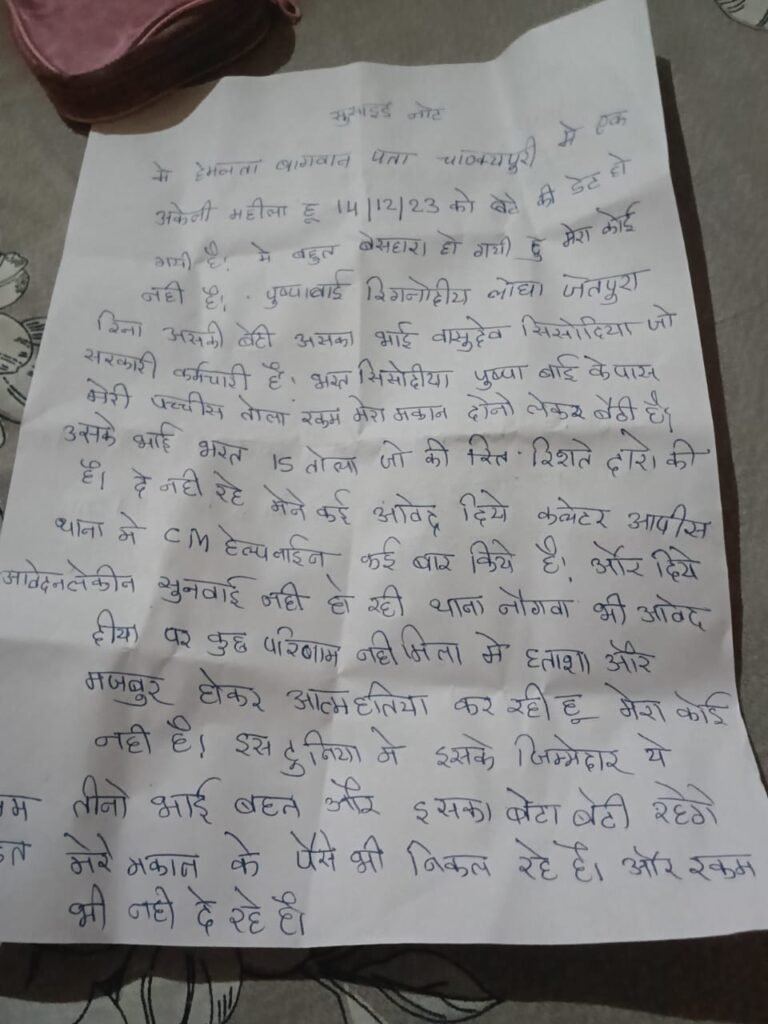 सुसाइड नोट
मे हेमलता बागवान पता चाणक्यपुरी मे एक
अकेली महीला हू 14/12/23 को बेटे की डेट हो
गयी है। मे बहुत बेसहारा हो गयी हु मेरा कोई
नही है। पुष्पाबाई रिगनोदीय लोधा जेतपुरा
रिना असकी बेटी असका भाई वासुदेव सिसोदिया जो
सरकारी कर्मचारी है. भरत सिसोदीया पुष्पा बाई के पास
मेरी पच्चीस तोला रकम मेरा मकान दोनो लेकर बैठी है।
उसके भाई भरत 15 तोला जो की रिश्ते दारो की
है। दे नही रहे मेने कई आवेद्र दिये कलेटर आफीस
थाना मे CM हेल्पलाईन कई बार किये है। और दिये
आवेदन लेकीन सुनवाई नही हो रही थाना नौगवा भी आवेद
दीया पर कुछ परिणाम नही मिला मे हताशा और
मजबुर होकर आत्महतिया कर रही हू मेरा कोई
नही है। इस दुनिया मे इसके जिम्मेदार ये
तीनो भाई बहन और इसका बेटा बेटी रहेगे
मेरे मकान के पैसे भी निकल रहे है। और रकम
भी नही दे रहे है।